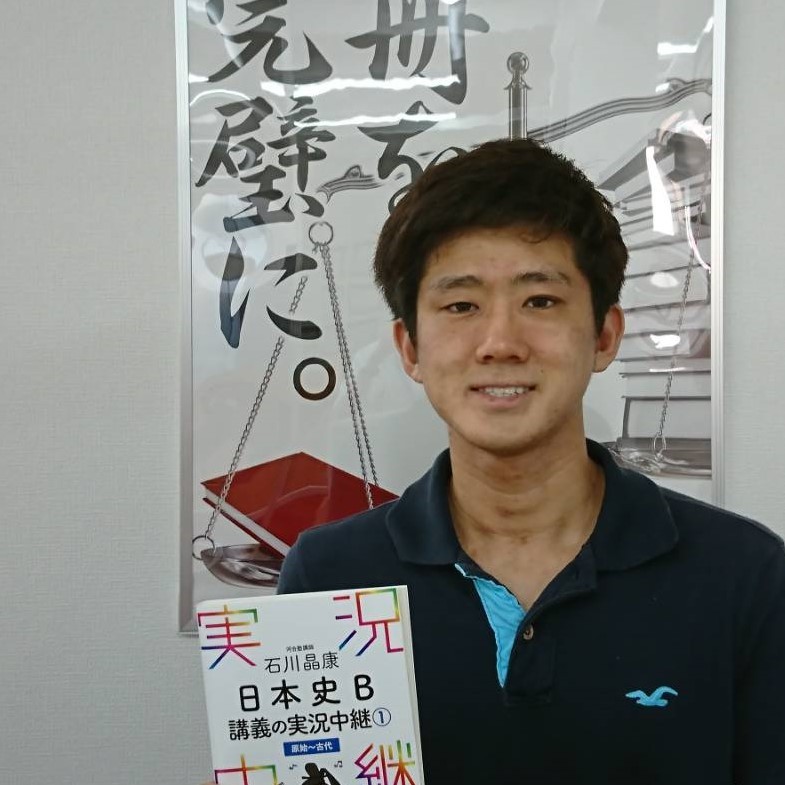 冊を
完璧に。
実況
河合塾講師
石川晶康
日本史B
講義の実況中継①
原始~古代
中継